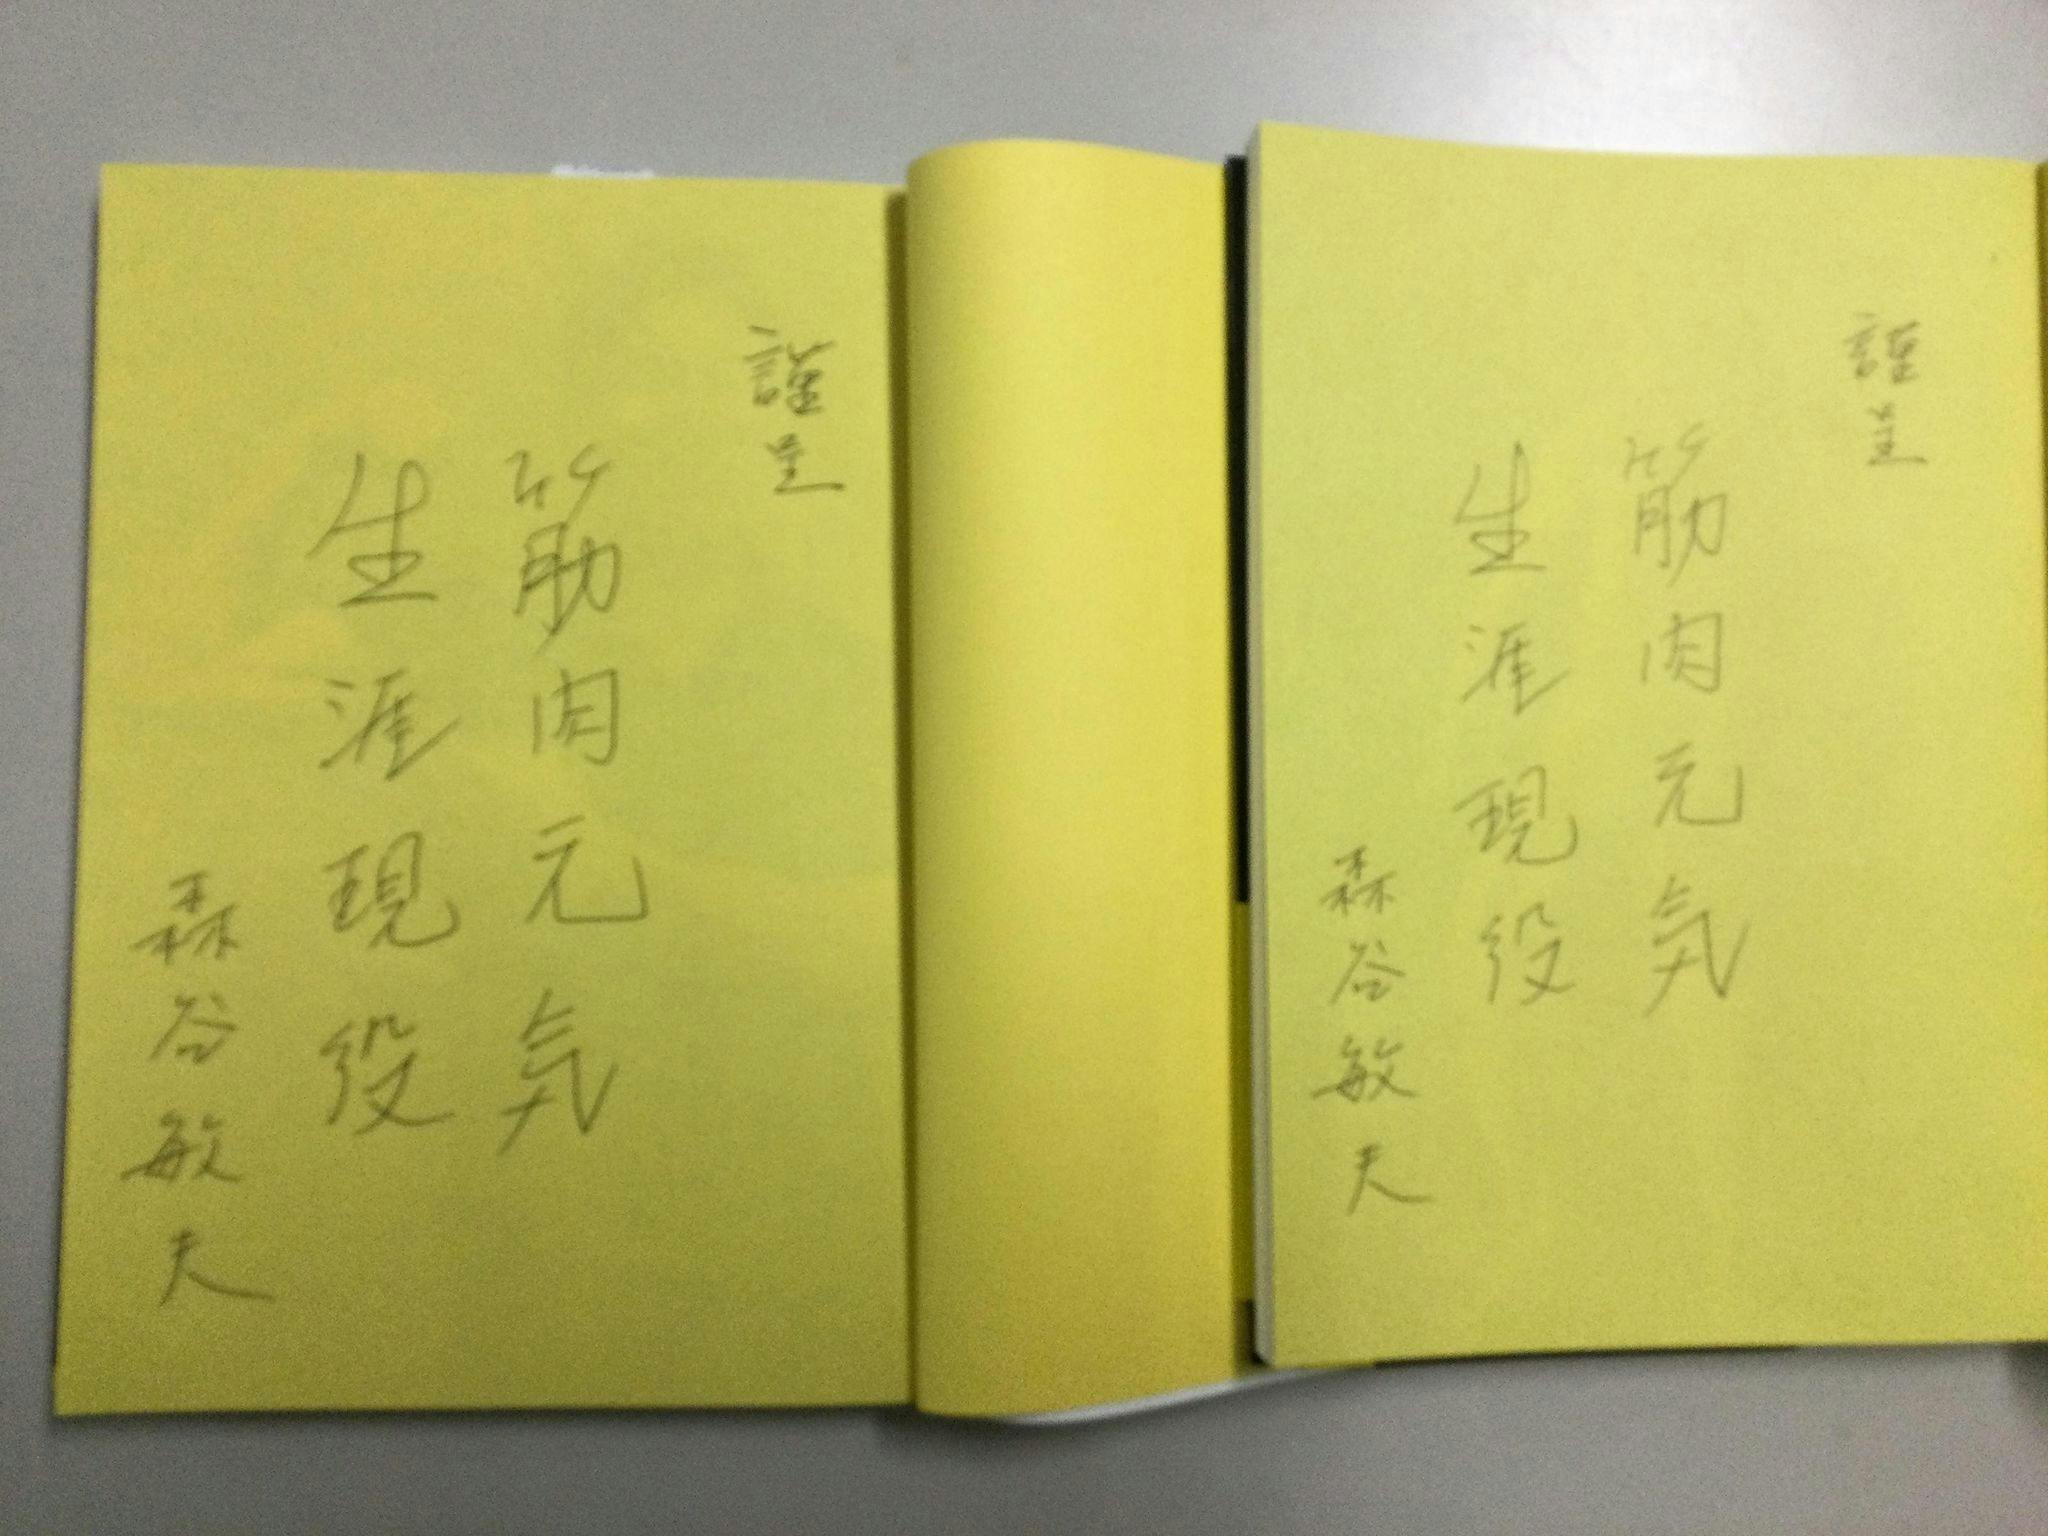 謹呈
筋肉元気
生涯現役
森谷敏夫
謹呈
筋肉元気
生涯現役
森谷敏夫